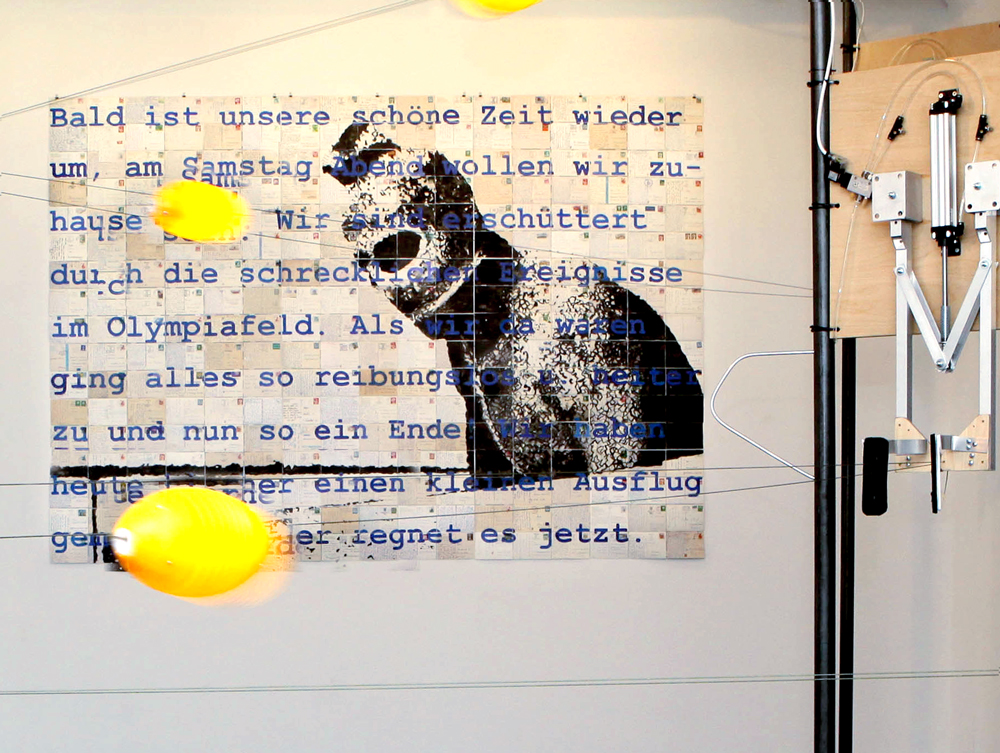 Bald ist unsere schöne Zeit wieder
um, am Samstag Abend wollen wir zu-
hause sein. Wir sind erschüttert
durch die schrecklichen Ereignisse
im Olympiafeld. Als wir da waren
ging alles so reibungslos u. heiter
zu und nun so ein Ende! Wir haben
heute einen kleinen Ausflug
er regnet es jetzt.